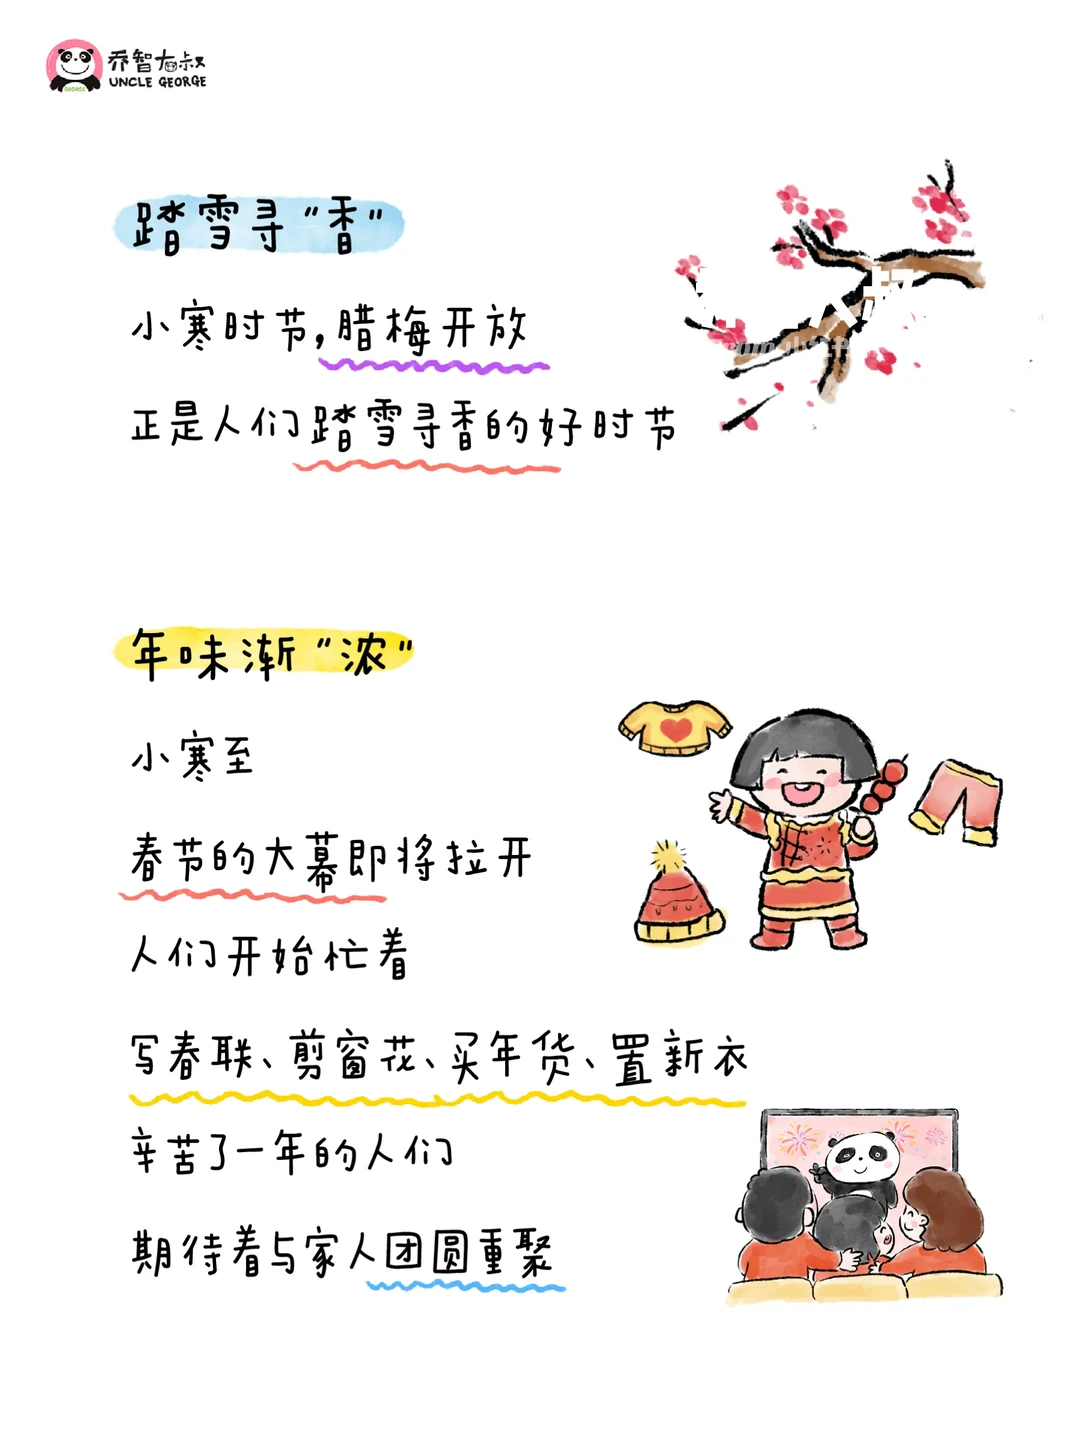 乔智大叔
UNCLE GEORGE
GEORGE
踏雪寻“香”
小寒时节，腊梅开放
正是人们踏雪寻香的好时节
年味渐“浓”
小寒至
春节的大幕即将拉开
人们开始忙着
写春联、剪窗花、买年货、置新衣
辛苦了一年的人们
期待着与家人团圆重聚